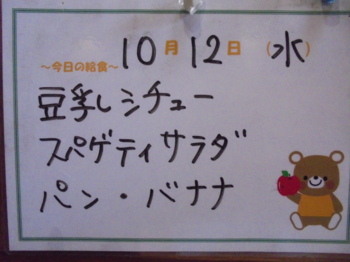 ～今日の給食～ 10月12日（水）
豆乳シチュー
スパゲティサラダ
パン・バナナ